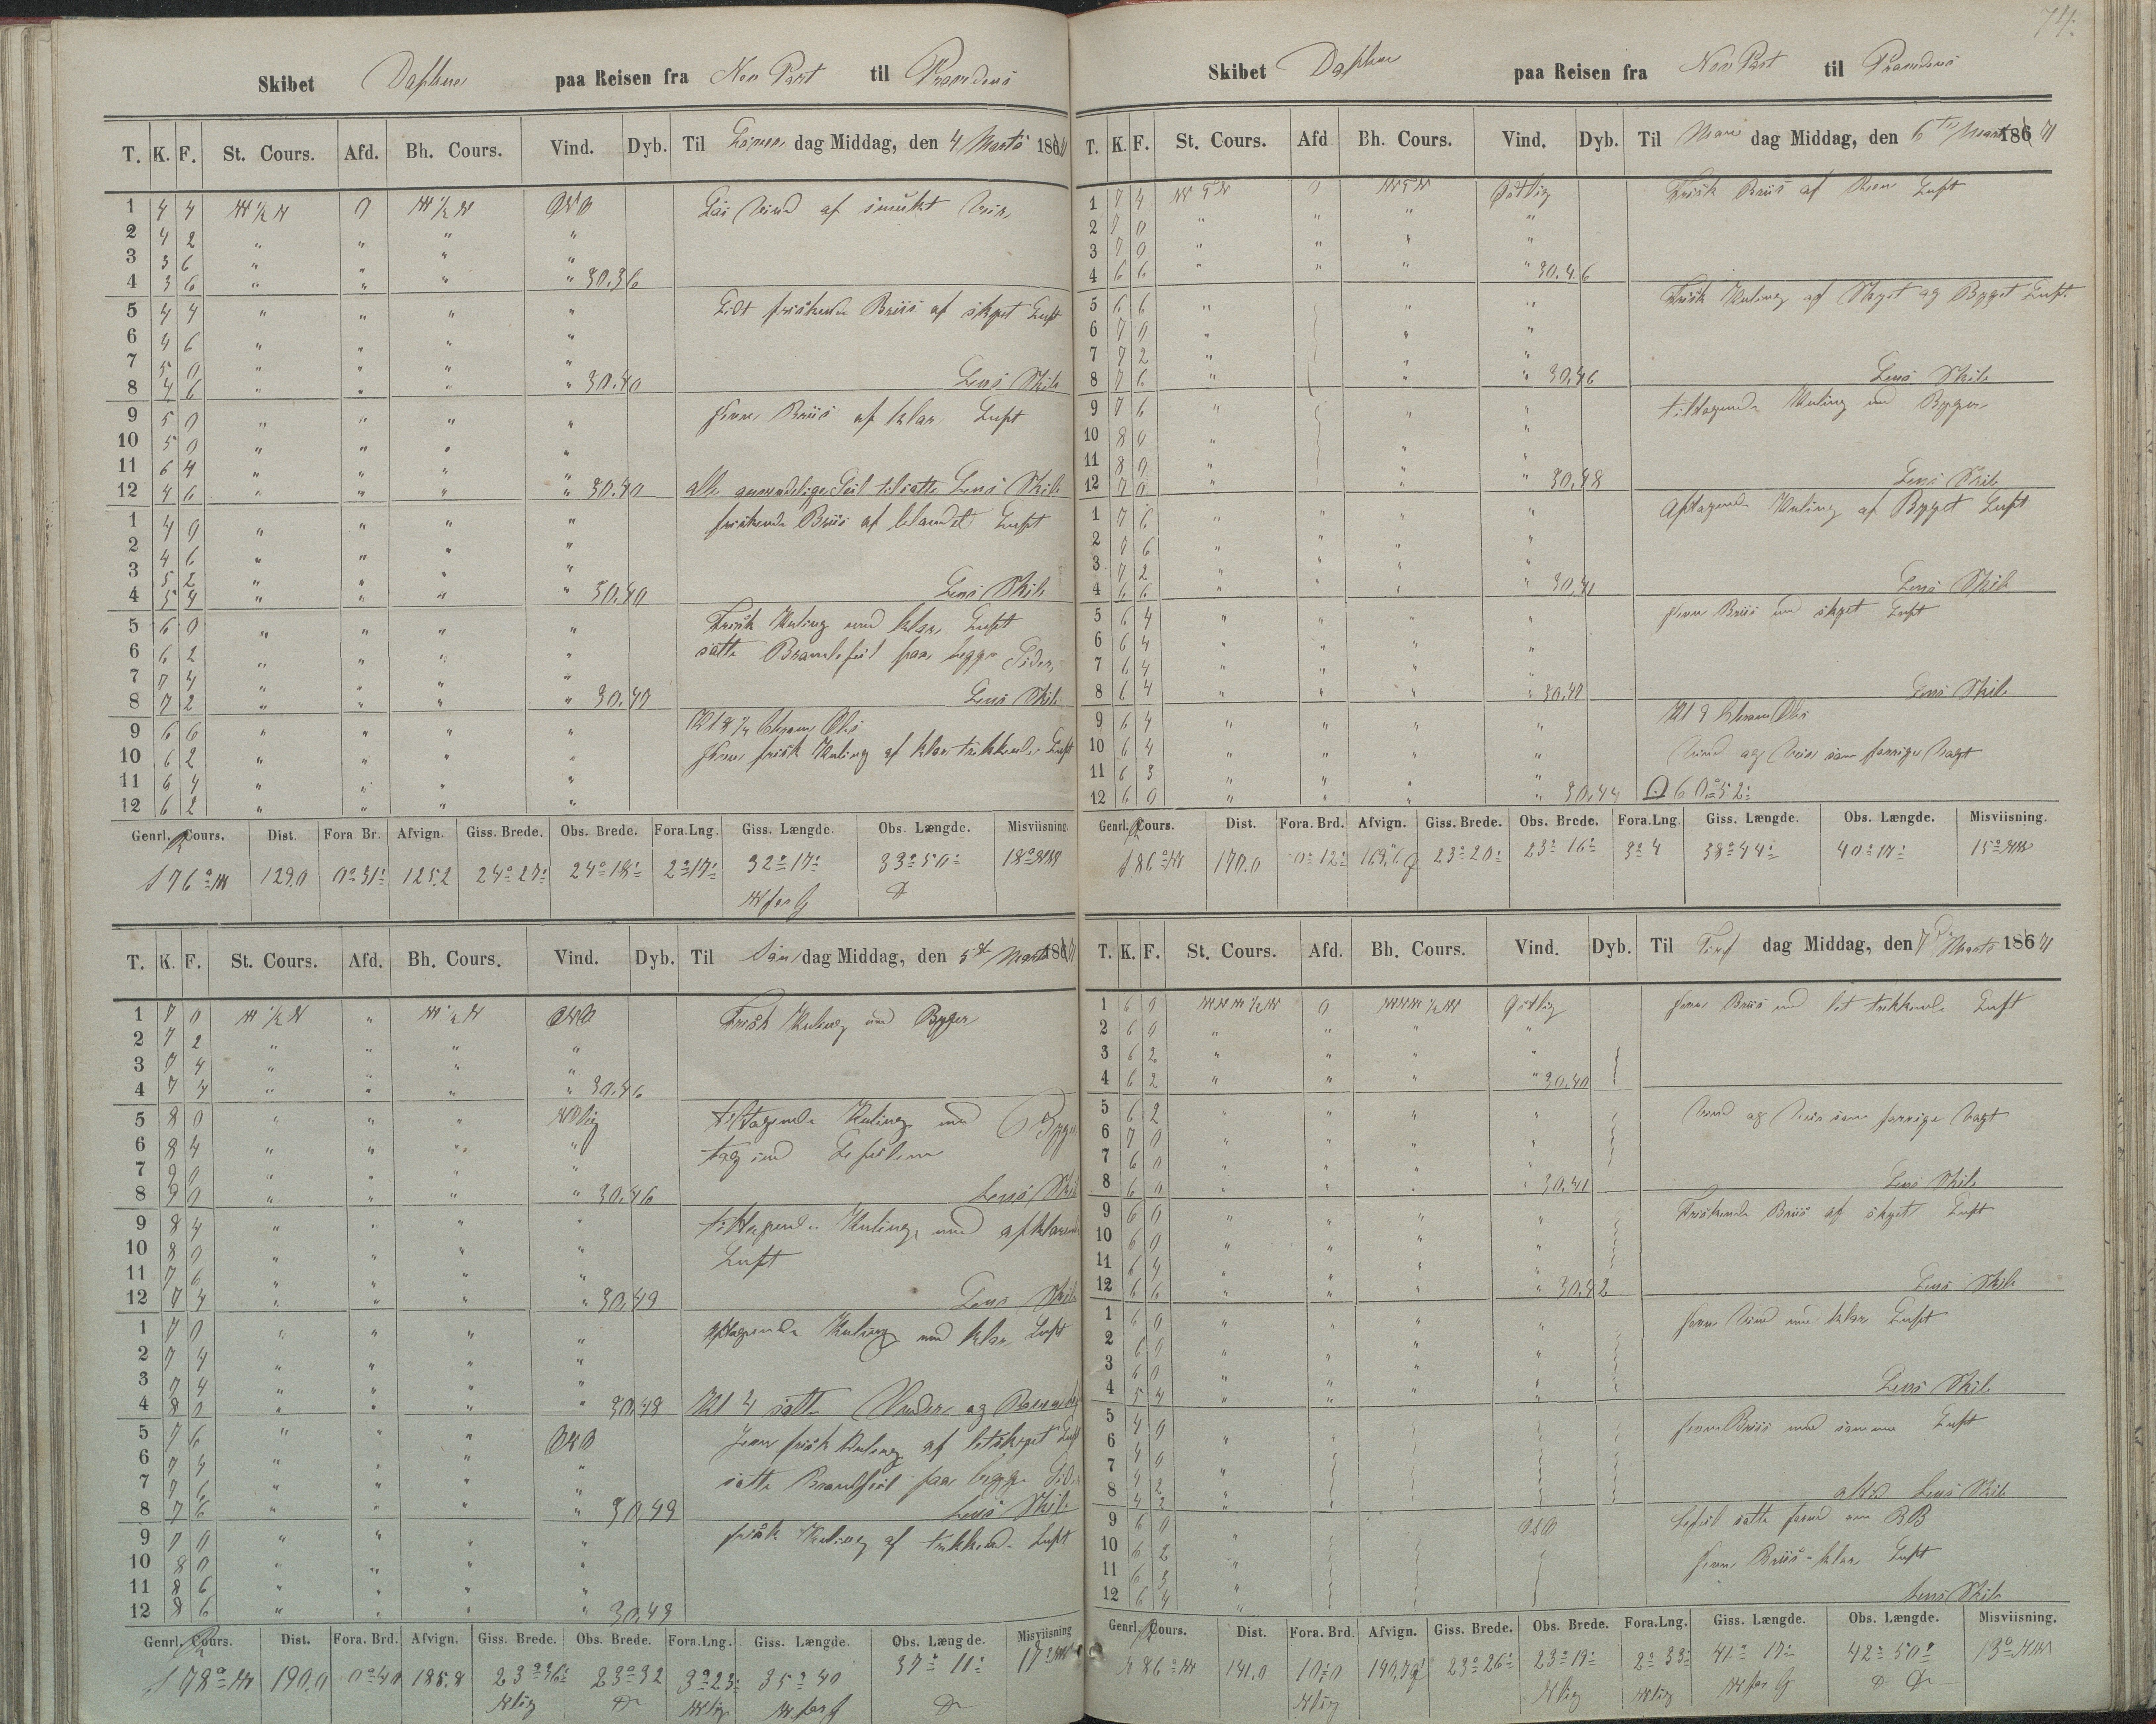 74.
Skibet Daphne paa Reisen fra New Port til
T. K. F. St. Cours. Afd. Bh. Cours. Vind. Dyb. Til Löver dag Middag, den 4 Marts 186
1 4 4 W ½ N 0 W ½ N ONO Lai Vind af smukt Veir
2 4 2 " " " "
3 3 6 " " " "
4 3 6 " " " " 30.36
5 4 4 " " " " Lidt friskende Briis af skyet Luft
6 4 6 " " " "
7 5 0 " " " "
8 4 6 " " " " 30.40 Lens Skib
9 5 0 " " " " Jevn Briis af klar Luft
10 5 0 " " " "
11 6 4 " " " "
12 4 6 " " " " 30.40 alle anvendelige Seil tilsatte Lens Skib
1 4 0 " " " " friskende Briis af blandet Luft
2 4 6 " " " "
3 5 2 " " " "
4 5 4 " " " " 30.40 Lens Skib
5 6 0 " " " " Frisk Kuling med klar Luft
6 6 2 " " " " satte paa begge Sider
7 7 4 " " " "
8 7 2 " " " " 30.40 Lens Skib
9 6 6 " " " "
10 6 2 " " " " Jevn frisk Kuling af klar trækkende Luft
11 6 4 " " " "
12 6 2 " " " "
Genrl. Cours. Dist. Fora Br. Afvign. Giss. Brede. Obs. Brede. Fora.Lng. Giss. Længde. Obs. Længde. Misviisning.
S 76° W 129.0 0° 31' 125.2 24° 27' 24° 18' 2° 17' 32° 17' 33° 50' 18° NW
W for G
T. K. F. St. Cours. Afd. Bh. Cours. Vind. Dyb. Til Søn dag Middag, den 5 Marts 186
1 7 0 W ½ N " W ½ N ONO Frisk Kuling med Byger
2 7 2 " " " "
3 7 4 " " " "
4 7 4 " " " " 30.46
5 8 0 " " " NOlig tiltagende Kuling med Byger
6 8 4 " " " " tog ind Læseilene
7 9 0 " " " "
8 9 0 " " " " 30.46 Lens Skib
9 8 4 " " " " tiltagende Kuling med afklarende
10 8 0 " " " " Luft
11 7 6 " " " "
12 7 4 " " " " 30.49 Lens Skib
1 7 0 " " " " aftagende Kuling med klar Luft
2 7 4 " " " "
3 7 4 " " " "
4 8 0 " " " " 30.48 Kl 4 satte Under og
5 7 6 " " " ONO Jevn frisk Kuling af letskyet Luft
6 7 4 " " " " satte paa begge Sider
7 7 6 " " " "
8 7 6 " " " " 30.49 Lens Skib
9 7 0 " " " " frisk Kuling af trækkende Luft
10 8 0 " " " "
11 8 6 " " " "
12 8 6 " " " " 30.43
Genrl. Cours. Dist. Fora. Brd. Afvign. Giss. Brede. Obs. Brede. Fora.Lng. Giss. Længde. Obs. Længde. Misviisning
S 78° W 190.0 0° 40 185.8 23° 36' 23° 32 3° 23' 35° 40 37° 11' 17° NW
Nlig Wlig W for G
Skibet Daphne paa Reisen fra New Port til
T. K. F. St. Cours. Afd Bh. Cours. Vind. Dyb. Til Man dag Middag, den 6 Marts 186
1 7 4 WTN 0 WTN Østlig Frisk Briis af Luft
2 7 0 " " " "
3 7 0 " " " "
4 6 6 " " " " 30.46
5 6 6 " " " Frisk Kuling af Skyet og Byget Luft
6 7 0 " " "
7 7 2 " " "
8 7 6 " " " 30.46 Lens Skib
9 7 6 " " " tiltagende Kuling med Byger
10 8 0 " "
11 8 0 " " "
12 7 0 " " " 30.48 Lens Skib
1 7 6 " " " " Aftagende Kuling af Byget Luft
2 7 6 " " " "
3 7 2 " " "
4 6 6 " " " " 30.41 Lens Skib
5 6 4 " " " " Jevn Briis med skyet Luft
6 6 4 " " " "
7 6 4 " " " "
8 6 4 " " " " 30.40 Lens Skib
9 6 4 " " " "
10 6 4 " " " " Vind og Veir som forrige Vagt
11 6 3 " " " "
12 6 0 " " " " 30.44 60° 52'
Genrl. Cours. Dist. Fora. Brd. Afvign. Giss. Brede. Obs. Brede. Fora.Lng. Giss. Længde. Obs. Længde. Misviisning.
S 86° W 170.0 0° 12' 169.6 23° 20' 23° 16' 3° 4 38° 44' 40° 17' 15° NW
T. K. F. St. Cours. Afd. Bh. Cours. Vind. Dyb. Til Tirs dag Middag, den 7 Marts 186
1 6 0 WNW ½ W 0 WNW ½ W Østlig Jevn Briis med let trækkende Luft
2 6 0 " " " "
3 6 2 " " " "
4 6 2 " " " " 30.40
5 6 2 " " " " Vind og Veir som forrige Vagt
6 7 0 " " " "
7 6 0 " " " "
8 6 0 " " " " 30.41 Lens Skib
9 6 0 " " " " Friskende Briis af skyet Luft
10 6 0 " " " "
11 6 4 " " " "
12 6 6 " " " " 30.42 Lens Skib
1 6 0 " " " " Jevn Vind med klar Luft
2 6 0 " " " "
3 6 0 " " "
4 5 4 " " " " Lens Skib
5 4 0 Jevn Briis med samme Luft
6 4 0 "
7 4 2 "
8 4 2 " altid Lens Skib
9 6 0 OSO Læseil satte forud om BB
10 6 2 " Jevn Briis - klar Luft
11 6 3 "
12 6 4 " Lens Skib
Genrl. Cours. Dist. Fora. Brd. Afvign. Giss. Brede. Obs. Brede. Fora.Lng. Giss. Længde. Obs. Længde. Misviisning.
86° W 141.0 10' 0 140.7 23° 26' 23° 19' 2° 33' 41° 17' 42° 50' 13° NW
Nlig Nlig Wlig W for G